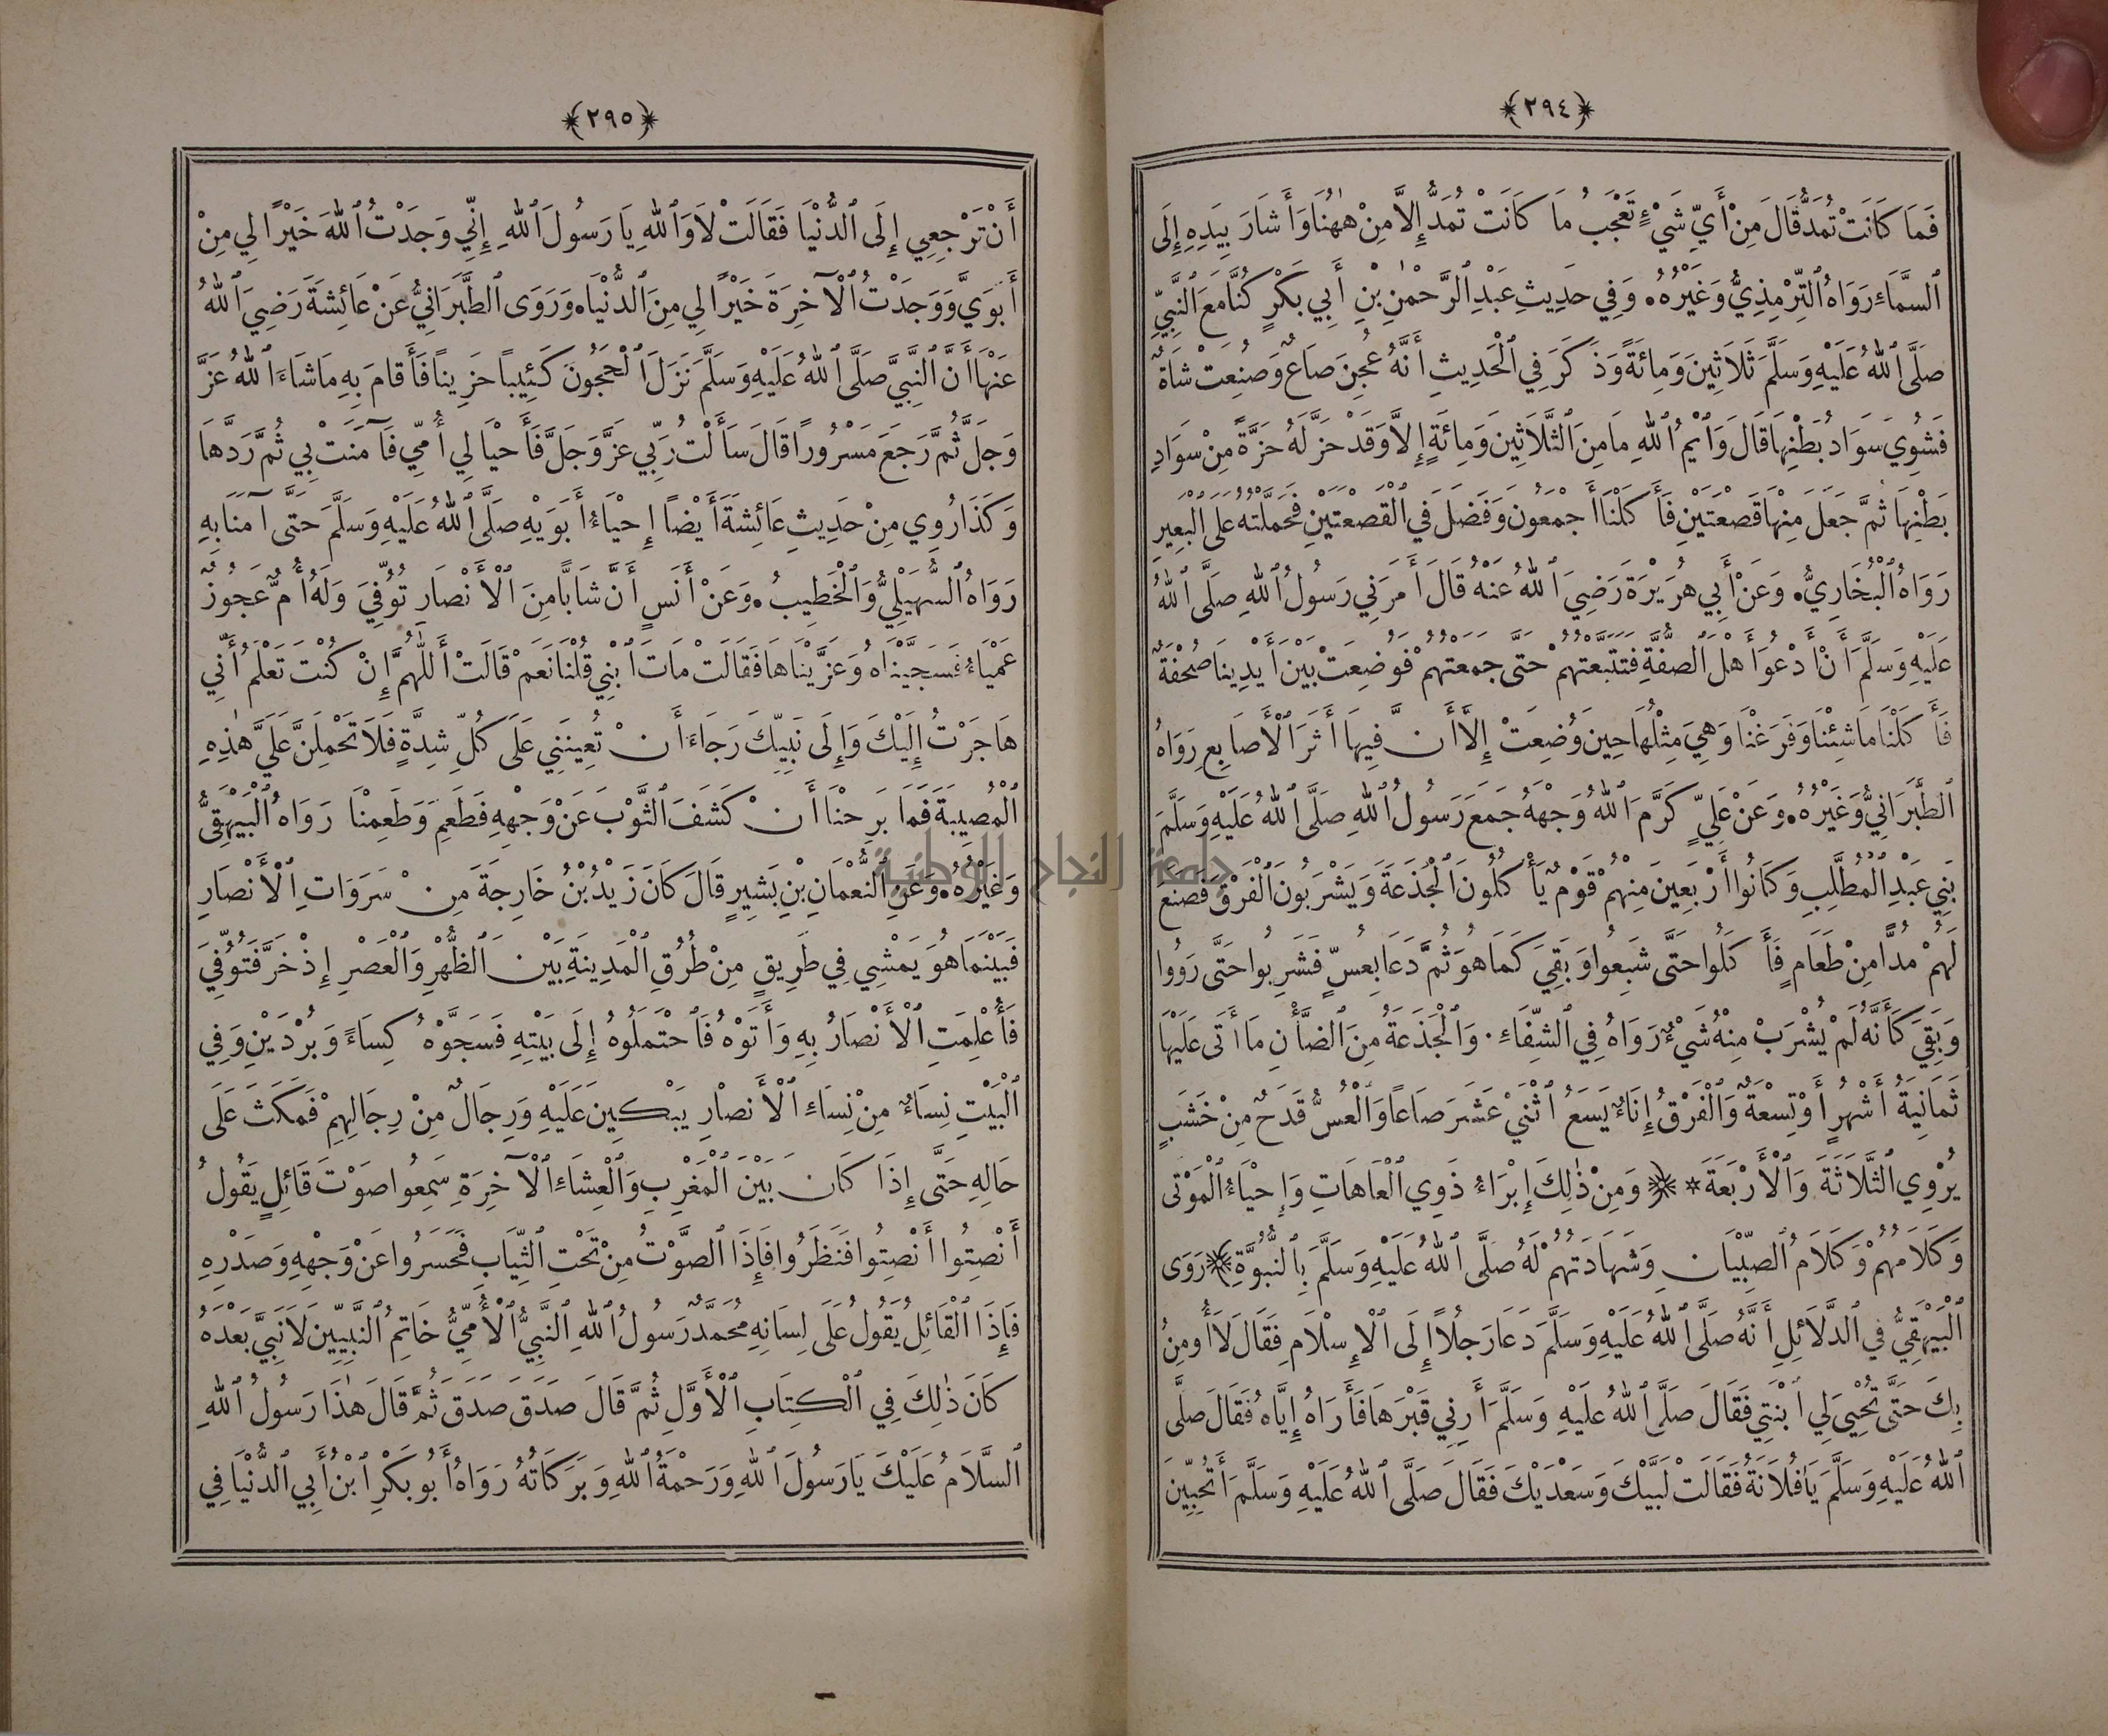 ﴿٢٩٤﴾
فَمَا كَانَتْ تُمَدُّ قَالَ مِنْ أَيِّ شَيْءٍ تَعْجَبُ مَا كَانَتْ تُمَدُّ إِلاَّ مِنْ هٰهُنَا وَأَشَارَ بِيَدِهِ إِلَى
ٱلسَّمَاءِ رَوَاهُ ٱلتِّرْمِذِيُّ وَغَيْرُهُ. وَفِي حَدِيثِ عَبْدِ ٱلرَّحْمٰنِ بْنِ أَبِي بَكْرٍ كُنَّا مَعَ ٱلنَّبِيِّ
صَلَّى ٱللهُ عَلَيْهِ وَسَلَّمَ ثَلاَثِينَ وَمِائَةً وَذَكَرَ فِي ٱلْحَدِيثِ أَنَّهُ عُجِنَ صَاعٌ وَصُنِعَتْ شَاةٌ
فَشُوِيَ سَوَادُ بَطْنِهَا قَالَ وَٱيْمُ ٱللهِ مَا مِنَ ٱلثَّلاَثِينَ وَمِائَةٍ إِلاَّ وَقَدْ حَزَّ لَهُ حَزَّةً مِنْ سَوَادِ
بَطْنِهَا ثُمَّ جَعَلَ مِنْهَا قَصْعَتَيْنِ فَأَكَلْنَا أَجْمَعُونَ وَفَضَلَ فِي ٱلْقَصْعَتَيْنِ فَحَمَلْتُهُ عَلَى ٱلْبَعِيرِ
رَوَاهُ ٱلْبُخَارِيُّ. وَعَنْ أَبِي هُرَيْرَةَ رَضِيَ ٱللهُ عَنْهُ قَالَ أَمَرَنِي رَسُولُ ٱللهِ صَلَّى ٱللهُ
عَلَيْهِ وَسَلَّمَ أَنْ أَدْعُوَ أَهْلَ ٱلصُّفَّةِ فَتَتَبَّعْتُهُمْ حَتَّى جَمَعْتُهُمْ فَوُضِعَتْ بَيْنَ أَيْدِينَا صُحْفَةٌ
فَأَكَلْنَا مَا شِئْنَا وَفَرَغْنَا وَهِيَ مِثْلُهَا حِينَ وُضِعَتْ إِلاَّ أَنَّ فِيهَا أَثَرَ ٱلْأَصَابِعِ رَوَاهُ
ٱلطَّبَرَانِيُّ وَغَيْرُهُ. وَعَنْ عَلِيٍّ كَرَّمَ ٱللهُ وَجْهَهُ جَمَعَ رَسُولُ ٱللهِ صَلَّى ٱللهُ عَلَيْهِ وَسَلَّمَ
بَنِي عَبْدِ ٱلْمُطَّلِبِ وَكَانُوا أَرْبَعِينَ مِنْهُمْ قَوْمٌ يَأْكُلُونَ ٱلْجَذَعَةَ وَيَشْرَبُونَ ٱلْفَرْقَ فَصَنَعَ
لَهُمْ مُدًّا مِنْ طَعَامٍ فَأَكَلُوا حَتَّى شَبِعُوا وَبَقِيَ كَمَا هُوَ ثُمَّ دَعَا بِعُسٍّ فَشَرِبُوا حَتَّى رَوُوا
وَبَقِيَ كَأَنَّهُ لَمْ يُشْرَبْ مِنْهُ شَيْءٌ رَوَاهُ فِي ٱلشِّفَاءِ. وَٱلْجَذَعَةُ مِنَ ٱلضَّأْنِ مَا أَتَى عَلَيْهَا
ثَمَانِيَةُ أَشْهُرٍ أَوْ تِسْعَةٌ وَٱلْفَرْقُ إِنَاءٌ يَسَعُ ٱثْنَيْ عَشَرَ صَاعًا وَٱلْعُسُّ قَدَحٌ مِنْ خَشَبٍ
يُرْوِي ٱلثَّلاَثَةَ وَٱلْأَرْبَعَةَ * ﴿ وَمِنْ ذٰلِكَ إِبْرَاءُ ذَوِي ٱلْعَاهَاتِ وَإِحْيَاءُ ٱلْمَوْتَى
وَكَلاَمُهُمْ وَكَلاَمُ ٱلصِّبْيَانِ وَشَهَادَتُهُمْ لَهُ صَلَّى ٱللهُ عَلَيْهِ وَسَلَّمَ بِٱلنُّبُوَّةِ ﴾ رَوَى
ٱلْبَيْهَقِيُّ فِي ٱلدَّلاَئِلِ أَنَّهُ صَلَّى ٱللهُ عَلَيْهِ وَسَلَّمَ دَعَا رَجُلاً إِلَى ٱلْإِسْلاَمِ فَقَالَ لاَ أُومِنُ
بِكَ حَتَّى تُحْيِيَ لِي ٱبْنَتِي فَقَالَ صَلَّى ٱللهُ عَلَيْهِ وَسَلَّمَ أَرِنِي قَبْرَهَا فَأَرَاهُ إِيَّاهُ فَقَالَ صَلَّى
ٱللهُ عَلَيْهِ وَسَلَّمَ يَا فُلاَنَةُ فَقَالَتْ لَبَّيْكَ وَسَعْدَيْكَ فَقَالَ صَلَّى ٱللهُ عَلَيْهِ وَسَلَّمَ أَتُحِبِّينَ
﴿٢٩٥﴾
أَنْ تَرْجِعِي إِلَى ٱلدُّنْيَا فَقَالَتْ لاَ وَٱللهِ يَا رَسُولَ ٱللهِ إِنِّي وَجَدْتُ ٱللهَ خَيْرًا لِي مِنْ
أَبَوَيَّ وَوَجَدْتُ ٱلْآخِرَةَ خَيْرًا لِي مِنَ ٱلدُّنْيَا. وَرَوَى ٱلطَّبَرَانِيُّ عَنْ عَائِشَةَ رَضِيَ ٱللهُ
عَنْهَا أَنَّ ٱلنَّبِيَّ صَلَّى ٱللهُ عَلَيْهِ وَسَلَّمَ نَزَلَ ٱلْحَجُونَ كَئِيبًا حَزِينًا فَأَقَامَ بِهِ مَا شَاءَ ٱللهُ عَزَّ
وَجَلَّ ثُمَّ رَجَعَ مَسْرُورًا قَالَ سَأَلْتُ رَبِّي عَزَّ وَجَلَّ فَأَحْيَا لِي أُمِّي فَآمَنَتْ بِي ثُمَّ رَدَّهَا
وَكَذَا رُوِي مِنْ حَدِيثِ عَائِشَةَ أَيْضًا إِحْيَاءُ أَبَوَيْهِ صَلَّى ٱللهُ عَلَيْهِ وَسَلَّمَ حَتَّى آمَنَا بِهِ
رَوَاهُ ٱلسُّهَيْلِيُّ وَٱلْخَطِيبُ. وَعَنْ أَنَسٍ أَنَّ شَابًّا مِنَ ٱلْأَنْصَارِ تُوُفِّيَ وَلَهُ أُمٌّ عَجُوزٌ
عَمْيَاءُ فَسَجَّيْنَاهُ وَعَزَّيْنَاهَا فَقَالَتْ مَاتَ ٱبْنِي قُلْنَا نَعَمْ قَالَتْ أَللّٰهُمَّ إِنْ كُنْتَ تَعْلَمُ أَنِّي
هَاجَرْتُ إِلَيْكَ وَإِلَى نَبِيِّكَ رَجَاءَ أَنْ تُعِينَنِي عَلَى كُلِّ شِدَّةٍ فَلاَ تَحْمِلَنَّ عَلَيَّ هٰذِهِ
ٱلْمُصِيبَةَ فَمَا بَرِحْنَا أَنْ كَشَفَ ٱلثَّوْبَ عَنْ وَجْهِهِ فَطَعِمَ وَطَعِمْنَا رَوَاهُ ٱلْبَيْهَقِيُّ
وَغَيْرُهُ. وَعَنِ ٱلنُّعْمَانِ بْنِ بَشِيرٍ قَالَ كَانَ زَيْدُ بْنُ خَارِجَةَ مِنْ سَرَوَاتِ ٱلْأَنْصَارِ
فَبَيْنَمَا هُوَ يَمْشِي فِي طَرِيقٍ مِنْ طُرُقِ ٱلْمَدِينَةِ بَيْنَ ٱلظُّهْرِ وَٱلْعَصْرِ إِذْ خَرَّ فَتُوُفِّيَ
فَأُعْلِمَتِ ٱلْأَنْصَارُ بِهِ وَأَتَوْهُ فَٱحْتَمَلُوهُ إِلَى بَيْتِهِ فَسَجَّوْهُ كِسَاءً وَبُرْدَيْنِ وَفِي
ٱلْبَيْتِ نِسَاءٌ مِنْ نِسَاءِ ٱلْأَنْصَارِ يَبْكِينَ عَلَيْهِ وَرِجَالٌ مِنْ رِجَالِهِمْ فَمَكَثَ عَلَى
حَالِهِ حَتَّى إِذَا كَانَ بَيْنَ ٱلْمَغْرِبِ وَٱلْعِشَاءِ ٱلْآخِرَةِ سَمِعُوا صَوْتَ قَائِلٍ يَقُولُ
أَنْصِتُوا أَنْصِتُوا فَنَظَرُوا فَإِذَا ٱلصَّوْتُ مِنْ تَحْتِ ٱلثِّيَابِ فَحَسَرُوا عَنْ وَجْهِهِ وَصَدْرِهِ
فَإِذَا ٱلْقَائِلُ يَقُولُ عَلَى لِسَانِهِ مُحَمَّدٌ رَسُولُ ٱللهِ ٱلنَّبِيُّ ٱلْأُمِّيُّ خَاتِمُ ٱلنَّبِيِّينَ لاَ نَبِيَّ بَعْدَهُ
كَانَ ذٰلِكَ فِي ٱلْكِتَابِ ٱلْأَوَّلِ ثُمَّ قَالَ صَدَقَ صَدَقَ ثُمَّ قَالَ هٰذَا رَسُولُ ٱللهِ
ٱلسَّلاَمُ عَلَيْكَ يَا رَسُولَ ٱللهِ وَرَحْمَةُ ٱللهِ وَبَرَكَاتُهُ رَوَاهُ أَبُو بَكْرٍ ٱبْنُ أَبِي ٱلدُّنْيَا فِي
جامعة النجاح الوطنية